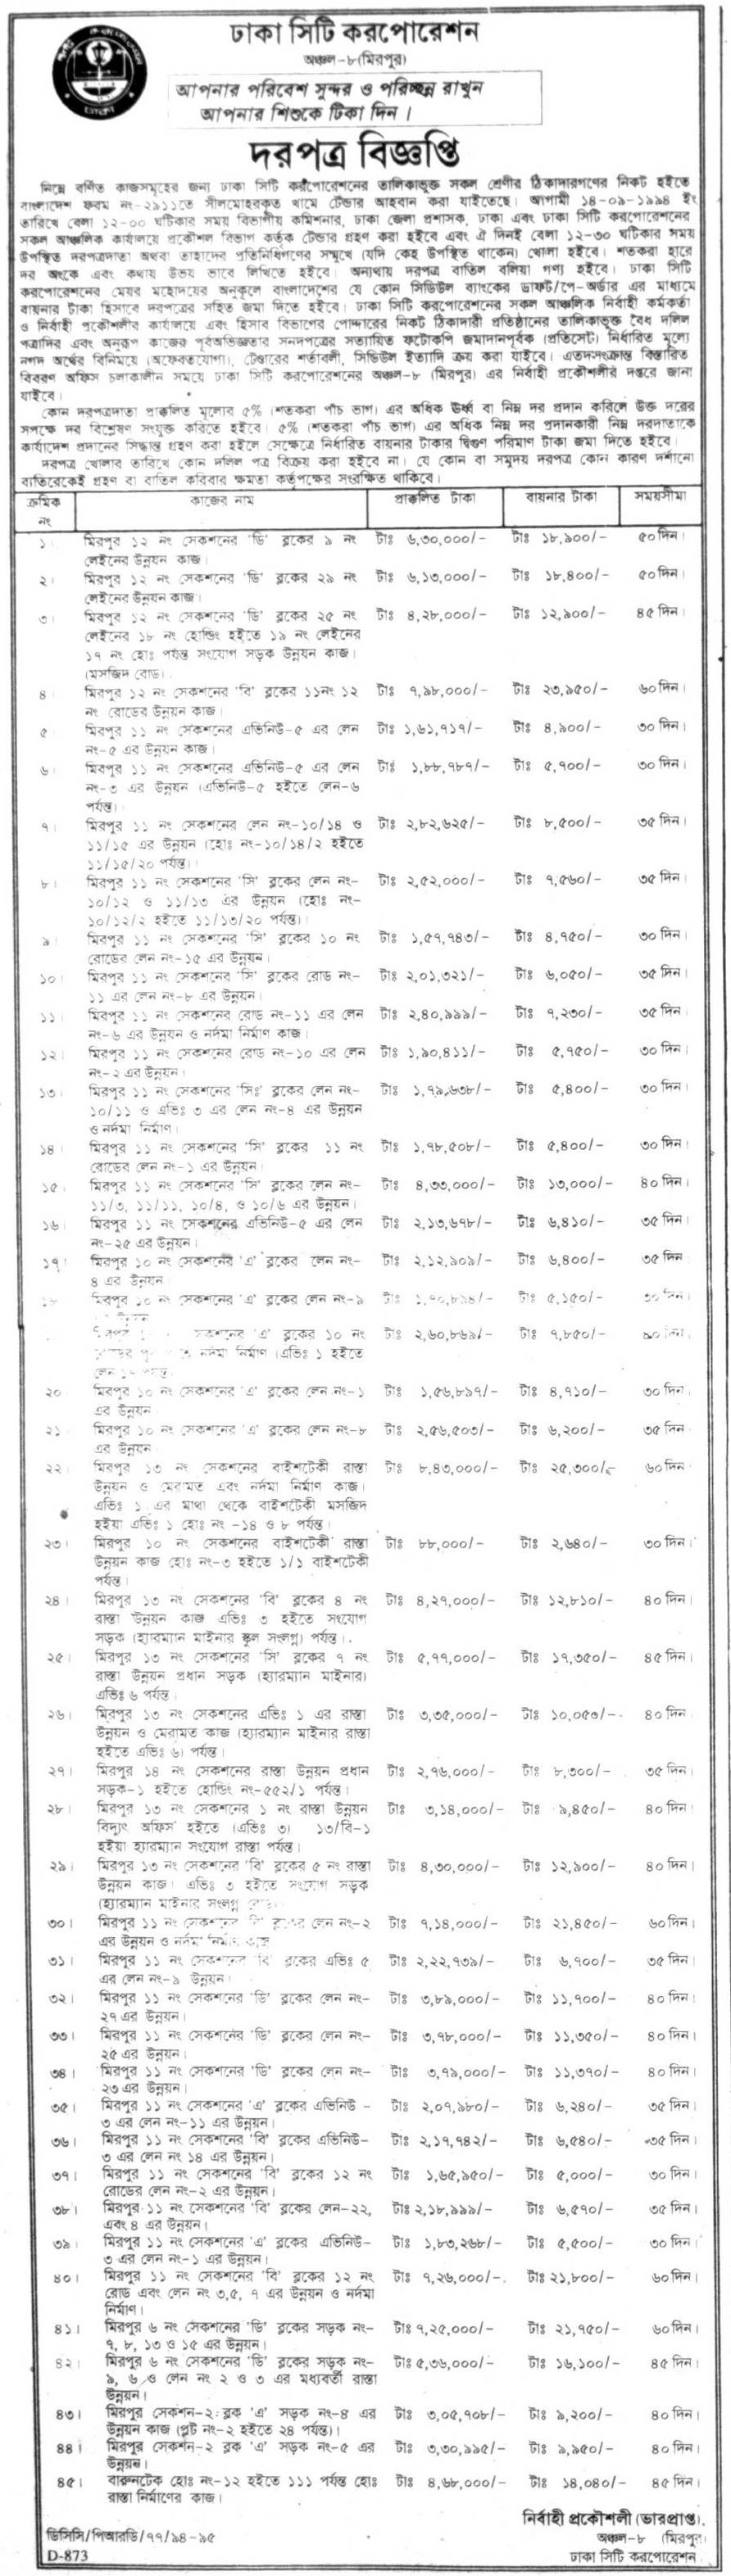 ঢাকা সিটি করপোরেশন
অঞ্চল-৮(মিরপুর)
আপনার পরিবেশ সুন্দর ও পরিচ্ছন্ন রাখুন
আপনার শিশুকে টিকা দিন।
দরপত্র বিজ্ঞপ্তি
নিম্নে বর্ণিত কাজসমূহের জন্য ঢাকা সিটি করপোরেশনের তালিকাভুক্ত সকল শ্রেণীর ঠিকাদারগণের নিকট হইতে
বাংলাদেশ ফরম নং-২৯১১তে সীলমোহরকৃত খামে টেন্ডার আহবান করা যাইতেছে। আগামী ১৪-০৯-১৯৯৪ ইং
তারিখে বেলা ১২-০০ ঘটিকার সময় বিভাগীয় কমিশনার, ঢাকা জেলা প্রশাসক, ঢাকা এবং ঢাকা সিটি করপোরেশনের
সকল আঞ্চলিক কার্যালয়ে প্রকৌশল বিভাগ কর্তৃক টেন্ডার গ্রহণ করা হইবে এবং ঐ দিনই বেলা ১২-৩০ ঘটিকার সময়
উপস্থিত দরপত্রদাতা অথবা তাহাদের প্রতিনিধিগণের সম্মুখে (যদি কেহ উপস্থিত থাকেন) খোলা হইবে। শতকরা হারে
দর অংকে এবং কথায় উভয় ভাবে লিখিতে হইবে। অন্যথায় দরপত্র বাতিল বলিয়া গণ্য হইবে। ঢাকা সিটি
করপোরেশনের মেয়র মহোদয়ের অনুকূলে বাংলাদেশের যে কোন সিডিউল ব্যাংকের ড্রাফট/পে-অর্ডার এর মাধ্যমে
বায়নার টাকা হিসাবে দরপত্রের সহিত জমা দিতে হইবে। ঢাকা সিটি করপোরেশনের সকল আঞ্চলিক নির্বাহী কর্মকর্তা
ও নির্বাহী প্রকৌশলীর কার্যালয়ে এবং হিসাব বিভাগের পোদ্দারের নিকট ঠিকাদারী প্রতিষ্ঠানের তালিকাভুক্ত বৈধ দলিল
পত্রাদির এবং অনুরূপ কাজের পূর্বঅভিজ্ঞতার সনদপত্রের সত্যায়িত ফটোকপি জমাদানপূর্বক (প্রতিসেট) নির্ধারিত মূল্যে
নগদ অর্থের বিনিময়ে (অফেরতযোগ্য), টেণ্ডারের শর্তাবলী, সিডিউল ইত্যাদি ক্রয় করা যাইবে। এতদসংক্রান্ত বিস্তারিত
বিবরণ অফিস চলাকালীন সময়ে ঢাকা সিটি করপোরেশনের অঞ্চল-৮ (মিরপুর) এর নির্বাহী প্রকৌশলীর দপ্তরে জানা
যাইবে।
কোন দরপত্রদাতা প্রাক্কলিত মূল্যের ৫% (শতকরা পাঁচ ভাগ) এর অধিক ঊর্ধ্ব বা নিম্ন দর প্রদান করিলে উক্ত দরের
সপক্ষে দর বিশ্লেষণ সংযুক্ত করিতে হইবে। ৫% (শতকরা পাঁচ ভাগ) এর অধিক নিম্ন দর প্রদানকারী নিম্ন দরদাতাকে
কার্যাদেশ প্রদানের সিদ্ধান্ত গ্রহণ করা হইলে সেক্ষেত্রে নির্ধারিত বায়নার টাকার দ্বিগুণ পরিমাণ টাকা জমা দিতে হইবে।
দরপত্র খোলার তারিখে কোন দলিল পত্র বিক্রয় করা হইবে না। যে কোন বা সমুদয় দরপত্র কোন কারণ দর্শানো
ব্যতিরেকেই গ্রহণ বা বাতিল করিবার ক্ষমতা কর্তৃপক্ষের সংরক্ষিত থাকিবে।
ক্রমিক নং কাজের নাম প্রাক্কলিত টাকা বায়নার টাকা সময়সীমা
১। মিরপুর ১২ নং সেকশনের 'ডি' ব্লকের ৯ নং টাঃ ৬,৩০,০০০/- টাঃ ১৮,৯০০/- ৫০ দিন।
লেইনের উন্নয়ন কাজ।
২। মিরপুর ১২ নং সেকশনের 'ডি' ব্লকের ২৯ নং টাঃ ৬,১৩,০০০/- টাঃ ১৮,৪০০/- ৫০ দিন।
লেইনের উন্নয়ন কাজ।
৩। মিরপুর ১২ নং সেকশনের 'ডি' ব্লকের ২৫ নং টাঃ ৪,২৮,০০০/- টাঃ ১২,৯০০/- ৪৫ দিন।
লেইনের ১৮ নং হোল্ডিং হইতে ১৯ নং লেইনের
১৭ নং হোঃ পর্যন্ত সংযোগ সড়ক উন্নয়ন কাজ।
(মসজিদ রোড)।
৪। মিরপুর ১২ নং সেকশনের 'বি' ব্লকের ১১নং ১২ টাঃ ৭,৯৮,০০০/- টাঃ ২৩,৯৫০/- ৬০ দিন।
নং রোডের উন্নয়ন কাজ।
৫ মিরপুর ১১ নং সেকশনের এভিনিউ-৫ এর লেন টাঃ ১,৬১,৭১৭/- টাঃ ৪,৯০০/- ৩০ দিন।
নং-৫ এর উন্নয়ন কাজ।
৬। মিরপুর ১১ নং সেকশনের এভিনিউ-৫ এর লেন টাঃ ১,৮৮,৭৮৭/- টাঃ ৫,৭০০/- ৩০ দিন।
নং-৩ এর উন্নয়ন (এভিনিউ-৫ হইতে লেন-৬
পর্যন্ত)।
৭। মিরপুর ১১ নং সেকশনের লেন নং-১০/১৪ ও টাঃ ২,৮২,৬২৫/- টাঃ ৮,৫০০/- ৩৫ দিন।
১১/১৫ এর উন্নয়ন (হোঃ নং-১০/১৪/২ হইতে
১১/১৫/২০ পর্যন্ত)।
৮। মিরপুর ১১ নং সেকশনের 'সি' ব্লকের লেন নং- টাঃ ২,৫২,০০০/- টাঃ ৭,৫৬০/- ৩৫ দিন।
১০/১২ ও ১১/১৩ এর উন্নয়ন (হোঃ নং-
১০/১২/২ হইতে ১১/১৩/২০ পর্যন্ত)।
৯। মিরপুর ১১ নং সেকশনের 'সি' ব্লকের ১০ নং টাঃ ১,৫৭,৭৪৩/- টাঃ ৪,৭৫০/- ৩০ দিন।
রোডের লেন নং-১৫ এর উন্নয়ন।
১০। মিরপুর ১১ নং সেকশনের 'সি' ব্লকের রোড নং- টাঃ ২,০১,৩২১/- টাঃ ৬,০৫০/- ৩৫ দিন।
১১ এর লেন নং-৮ এর উন্নয়ন।
১১। মিরপুর ১১ নং সেকশনের রোড নং-১১ এর লেন টাঃ ২,৪০,৯৯৯/- টাঃ ৭,২৩০/- ৩৫ দিন।
নং-৬ এর উন্নয়ন ও নর্দমা নির্মাণ কাজ।
১২। মিরপুর ১১ নং সেকশনের রোড নং-১০ এর লেন টাঃ ১,৯০,৪১১/- টাঃ ৫,৭৫০/- ৩০ দিন।
নং-২ এর উন্নয়ন।
১৩। মিরপুর ১১ নং সেকশনের 'সিঃ' ব্লকের লেন নং- টাঃ ১,৭৯,৬৩৮/- টাঃ ৫,৪০০/- ৩০ দিন।
১০/১১ ও এভিঃ ৩ এর লেন নং-৪ এর উন্নয়ন
ও নর্দমা নির্মাণ।
১৪। মিরপুর ১১ নং সেকশনের 'সি' ব্লকের ১১ নং টাঃ ১,৭৮,৫০৮/- টাঃ ৫,৪০০/- ৩০ দিন।
রোডের লেন নং-১ এর উন্নয়ন।
১৫। মিরপুর ১১ নং সেকশনের 'সি' ব্লকের লেন নং- টাঃ ৪,৩৩,০০০/- টাঃ ১৩,০০০/- ৪০ দিন।
১১/৩, ১১/১১, ১০/৪, ও ১০/৬ এর উন্নয়ন।
১৬। মিরপুর ১১ নং সেকশনের এভিনিউ-৫ এর লেন টাঃ ২,১৩,৬৭৮/- টাঃ ৬,৪১০/- ৩৫ দিন।
নং-২৫ এর উন্নয়ন।
১৭। মিরপুর ১০ নং সেকশনের 'এ' ব্লকের লেন নং- টাঃ ২,১২,৯০৯/- টাঃ ৬,৪০০/- ৩৫ দিন।
৪ এর উন্নয়ন।
১৮ মিরপুর ১০ নং সেকশনের 'এ' ব্লকের লেন নং-৯ টাঃ ১,৭০,৮৯৪/- টাঃ ৫,১৫০/- ৩০ দিন।
উন্নয়ন
সেকশনের 'এ' ব্লকের ১০ নং টাঃ ২,৬০,৮৬৯/- টাঃ ৭,৮৫০/- দিন।
নর্দমা নির্মাণ (এভিঃ ১ হইতে
লেন পর্যন্ত)।
২০ মিরপুর ১০ নং সেকশনের 'এ' ব্লকের লেন নং-১ টাঃ ১,৫৬,৮৯৭/- টাঃ ৪,৭১০/- ৩০ দিন।
এর উন্নয়ন।
২১। মিরপুর ১০ নং সেকশনের 'এ' ব্লকের লেন নং-৮ টাঃ ২,৫৬,৫০৩/- টাঃ ৬,২০০/- ৩৫ দিন।
এর উন্নয়ন।
২২। মিরপুর ১৩ নং সেকশনের বাইশটেকী রাস্তা টাঃ ৮,৪৩,০০০/- টাঃ ২৫,৩০০/- ৬০ দিন।
উন্নয়ন ও মেরামত এবং নর্দমা নির্মাণ কাজ।
এভিঃ ১ এর মাথা থেকে বাইশটেকী মসজিদ
হইয়া এভিঃ ১ হোঃ নং -১৪ ও ৮ পর্যন্ত।
২৩। মিরপুর ১০ নং সেকশনের বাইশটেকী রাস্তা টাঃ ৮৮,০০০/- টাঃ ২,৬৪০/- ৩০ দিন।
উন্নয়ন কাজ হোঃ নং-৩ হইতে ১/১ বাইশটেকী
পর্যন্ত।
২৪। মিরপুর ১৩ নং সেকশনের 'বি' ব্লকের ৪ নং টাঃ ৪,২৭,০০০/- টাঃ ১২,৮১০/- ৪০ দিন।
রাস্তা উন্নয়ন কাজ এভিঃ ৩ হইতে সংযোগ
সড়ক (হ্যারম্যান মাইনার স্কুল সংলগ্ন) পর্যন্ত।
২৫। মিরপুর ১৩ নং সেকশনের 'সি' ব্লকের ৭ নং টাঃ ৫,৭৭,০০০/- টাঃ ১৭,৩৫০/- ৪৫ দিন।
রাস্তা উন্নয়ন প্রধান সড়ক (হ্যারম্যান মাইনার)
এভিঃ ৬ পর্যন্ত।
২৬। মিরপুর ১৩ নং সেকশনের এভিঃ ১ এর রাস্তা টাঃ ৩,৩৫,০০০/- টাঃ ১০,০৫০/- ৪০ দিন।
উন্নয়ন ও মেরামত কাজ (হ্যারম্যান মাইনার রাস্তা
হইতে এভিঃ ৬) পর্যন্ত।
২৭। মিরপুর ১৪ নং সেকশনের রাস্তা উন্নয়ন প্রধান টাঃ ২,৭৬,০০০/- টাঃ ৮,৩০০/- ৩৫ দিন।
সড়ক-১ হইতে হোল্ডিং নং-৫৫২/১ পর্যন্ত।
২৮। মিরপুর ১৩ নং সেকশনের ১ নং রাস্তা উন্নয়ন টাঃ ৩,১৪,০০০/- টাঃ ৯,৪৫০/- ৪০ দিন।
বিদ্যুৎ অফিস হইতে (এভিঃ ৩) ১৩/বি-১
হইয়া হ্যারম্যান সংযোগ রাস্তা পর্যন্ত।
২৯। মিরপুর ১৩ নং সেকশনের 'বি' ব্লকের ৫ নং রাস্তা টাঃ ৪,৩০,০০০/- টাঃ ১২,৯০০/- ৪০ দিন।
উন্নয়ন কাজ। এভিঃ ৩ হইতে সংযোগ সড়ক
(হ্যারম্যান মাইনার সংলগ্ন
৩০। মিরপুর ১১ নং সেকশনের ব্লকের লেন নং-২ টাঃ ৭,১৪,০০০/- টাঃ ২১,৪৫০/- ৬০ দিন।
এর উন্নয়ন ও নর্দমা নির্মাণ কাজ
৩১। মিরপুর ১১ নং সেকশনের 'বি' ব্লকের এভিঃ ৫ টাঃ ২,২২,৭৩৯/- টাঃ ৬,৭০০/- ৩৫ দিন।
এর লেন নং-৯ উন্নয়ন।
৩২। মিরপুর ১১ নং সেকশনের 'ডি' ব্লকের লেন নং- টাঃ ৩,৮৯,০০০/- টাঃ ১১,৭০০/- ৪০ দিন।
২৭ এর উন্নয়ন।
৩৩। মিরপুর ১১ নং সেকশনের 'ডি' ব্লকের লেন নং- টাঃ ৩,৭৮,০০০/- টাঃ ১১,৩৫০/- ৪০ দিন।
২৫ এর উন্নয়ন।
৩৪। মিরপুর ১১ নং সেকশনের 'ডি' ব্লকের লেন নং- টাঃ ৩,৭৯,০০০/- টাঃ ১১,৩৭০/- ৪০ দিন।
২৩ এর উন্নয়ন।
৩৫। মিরপুর ১১ নং সেকশনের 'এ' ব্লকের এভিনিউ - টাঃ ২,০৭,৯৮০/- টাঃ ৬,২৪০/- ৩৫ দিন।
৩ এর লেন নং-১১ এর উন্নয়ন।
৩৬। মিরপুর ১১ নং সেকশনের 'বি' ব্লকের এভিনিউ- টাঃ ২,১৭,৭৪২/- টাঃ ৬,৫৪০/- ৩৫ দিন।
৩ এর লেন নং ১৪ এর উন্নয়ন।
৩৭। মিরপুর ১১ নং সেকশনের 'বি' ব্লকের ১২ নং টাঃ ১,৬৫,৯৫০/- টাঃ ৫,০০০/- ৩০ দিন।
রোডের লেন নং-২ এর উন্নয়ন।
৩৮। মিরপুর ১১ নং সেকশনের 'বি' ব্লকের লেন-২২, টাঃ ২,১৮,৯৯৯/- টাঃ ৬,৫৭০/- ৩৫ দিন।
এবং ৪ এর উন্নয়ন।
৩৯। মিরপুর ১১ নং সেকশনের 'এ' ব্লকের এভিনিউ- টাঃ ১,৮৩,২৬৮/- টাঃ ৫,৫০০/- ৩০ দিন।
৩ এর লেন নং-১ এর উন্নয়ন।
৪০। মিরপুর ১১ নং সেকশনের 'বি' ব্লকের ১২ নং টাঃ ৭,২৬,০০০/- টাঃ ২১,৮০০/- ৬০ দিন।
রোড এবং লেন নং ৩,৫, ৭ এর উন্নয়ন ও নর্দমা
নির্মাণ।
৪১। মিরপুর ৬ নং সেকশনের 'ডি' ব্লকের সড়ক নং- টাঃ ৭,২৫,০০০/- টাঃ ২১,৭৫০/- ৬০ দিন।
৭, ৮, ১৩ ও ১৫ এর উন্নয়ন।
৪২। মিরপুর ৬ নং সেকশনের 'ডি' ব্লকের সড়ক নং- টাঃ ৫,৩৬,০০০/- টাঃ ১৬,১০০/- ৪৫ দিন।
৯, ৬ ও লেন নং ২ ও ৩ এর মধ্যবর্তী রাস্তা
উন্নয়ন।
৪৩। মিরপুর সেকশন-২ ব্লক 'এ' সড়ক নং-৪ এর টাঃ ৩,০৫,৭০৮/- টাঃ ৯,২০০/- ৪০ দিন।
উন্নয়ন কাজ (প্লট নং-২ হইতে ২৪ পর্যন্ত)।
৪৪। মিরপুর সেকশন-২ ব্লক 'এ' সড়ক নং-৫ এর টাঃ ৩,৩০,৯৯৫/- টাঃ ৯,৯৫০/- ৪০ দিন।
উন্নয়ন।
৪৫। বারুনটেক হোঃ নং-১২ হইতে ১১১ পর্যন্ত হোঃ টাঃ ৪,৬৮,০০০/- টাঃ ১৪,০৪০/- ৪৫ দিন।
রাস্তা নির্মাণের কাজ।
নির্বাহী প্রকৌশলী (ভারপ্রাপ্ত),
অঞ্চল-৮ (মিরপুর)
ঢাকা সিটি করপোরেশন
ডিসিসি/পিআরডি/৭৭/৯৪-৯৫
D-873